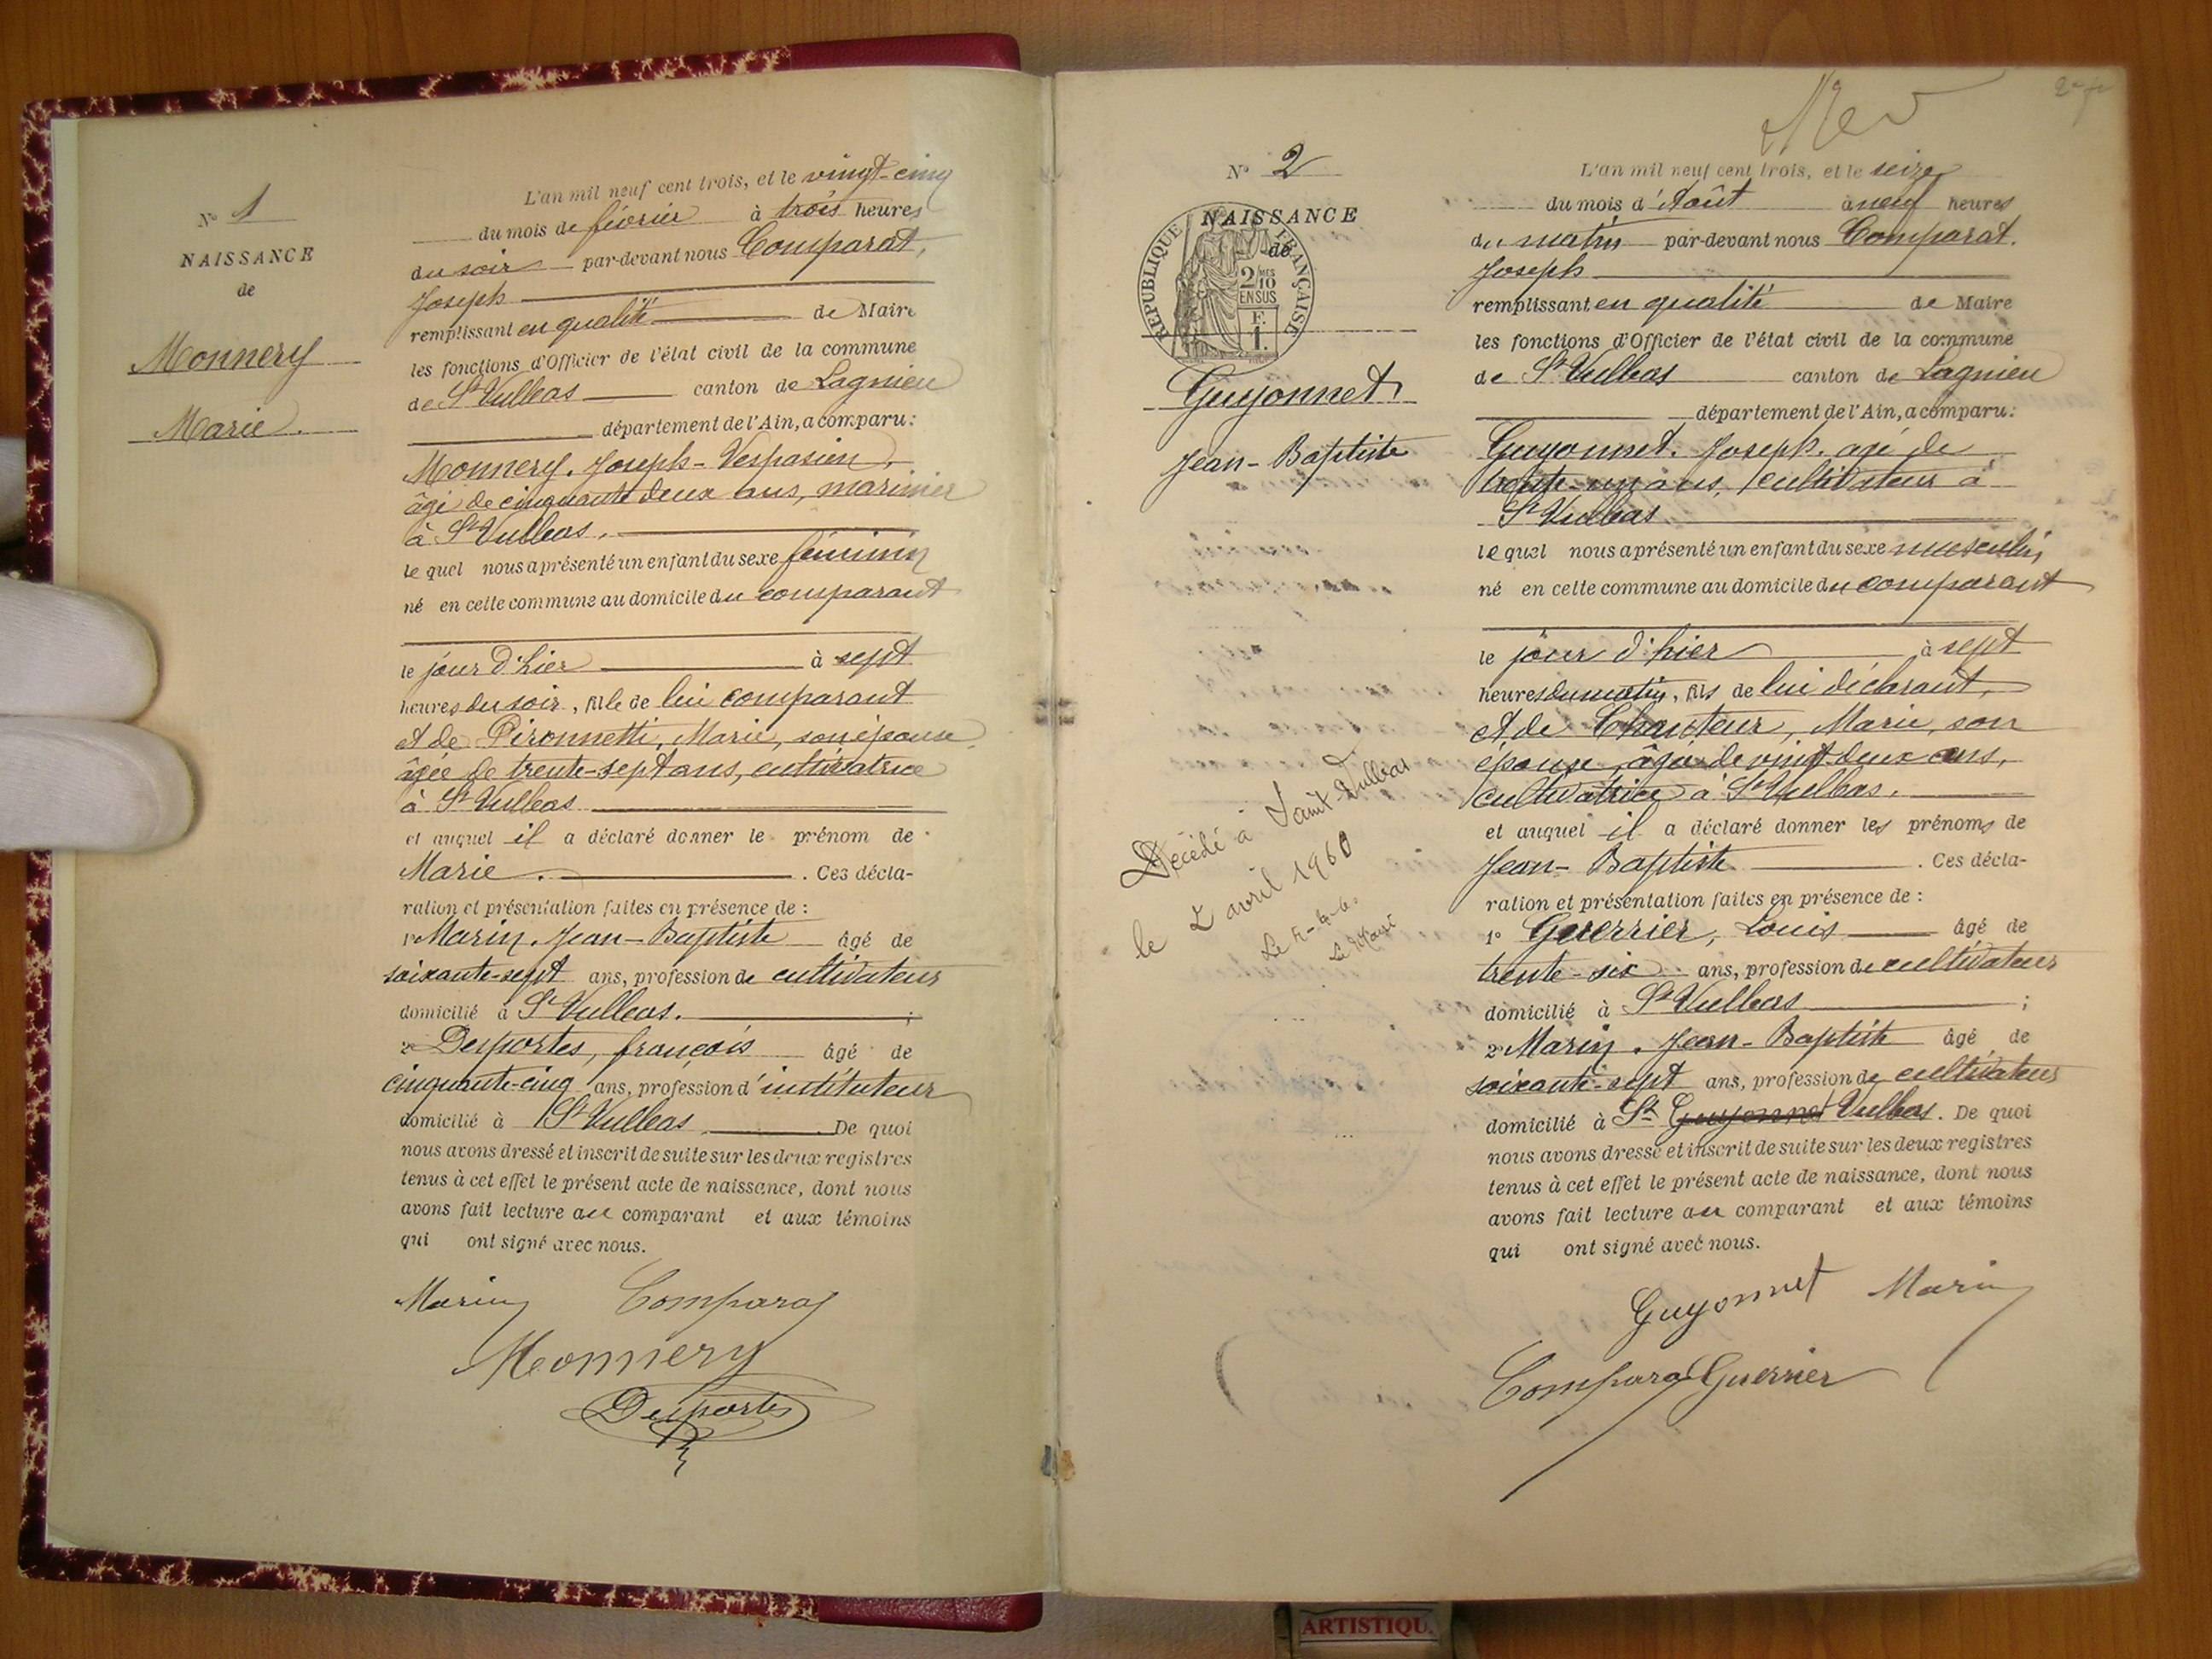 N° 1
NAISSANCE
de
Monnery
Marie.
L'an mil neuf cent trois, et le vingt-cinq
du mois de février à trois heures
du soir par-devant nous Comparat,
Joseph
remplissant en qualité de Maire
les fonctions d'Officier de l'état civil de la commune
de St Vulbas canton de Lagnieu
département de l'Ain, a comparu:
Monnery, Joseph-Vespasien,
âgé de cinquante deux ans, marinier
à St Vulbas.
lequel nous a présenté un enfant du sexe féminin
né en cette commune au domicile du comparant
le jour d'hier à sept
heures du soir, fille de lui comparant
et de Pironnetti, Marie, son épouse,
âgée de trente-sept ans, cultivatrice
à St Vulbas
et auquel il a déclaré donner le prénom de
Marie. . Ces décla-
ration et présentation faites en présence de :
1° Marin, Jean-Baptiste âgé de
soixante-sept ans, profession de cultivateur
domicilié à St Vulbas. ;
2° Desportes, françois âgé de
cinquante-cinq ans, profession d'instituteur
domicilié à St Vulbas . De quoi
nous avons dressé et inscrit de suite sur les deux registres
tenus à cet effet le présent acte de naissance, dont nous
avons fait lecture au comparant et aux témoins
qui ont signé avec nous.
Marin Comparat
Monnery
Desportes
N° 2
NAISSANCE
de
REPUBLIQUE FRANÇAISE
2/10 MES
EN SUS
F.
1.
Guyonnet
Jean-Baptiste
Décédé à Saint-Vulbas
le 2 avril 1960
L'an mil neuf cent trois, et le seize
du mois d'Août à neuf heures
du matin par-devant nous Comparat.
Joseph
remplissant en qualité de Maire
les fonctions d'Officier de l'état civil de la commune
de St Vulbas canton de Lagnieu
département de l'Ain, a comparu:
Guyonnet. Joseph. agé de
trente-un ans, cultivateur à
St Vulbas
lequel nous a présenté un enfant du sexe masculin,
né en cette commune au domicile du comparant
le jour d'hier à sept
heures du matin, fils de lui déclarant,
et de Chanteur, Marie, son
épouse, âgée de vingt-deux ans,
cultivatrice à St Vulbas.
et auquel il a déclaré donner les prénoms de
Jean-Baptiste . Ces décla-
ration et présentation faites en présence de :
1° Guerrier, Louis âgé de
trente-six ans, profession de cultivateur
domicilié à St Vulbas ;
2° Marin, Jean-Baptiste âgé de
soixante-sept ans, profession de cultivateur
domicilié à St Guyonnet Vulbas. De quoi
nous avons dressé et inscrit de suite sur les deux registres
tenus à cet effet le présent acte de naissance, dont nous
avons fait lecture au comparant et aux témoins
qui ont signé avec nous.
Guyonnet Marin
Comparat Guerrier
ARTISTIQU